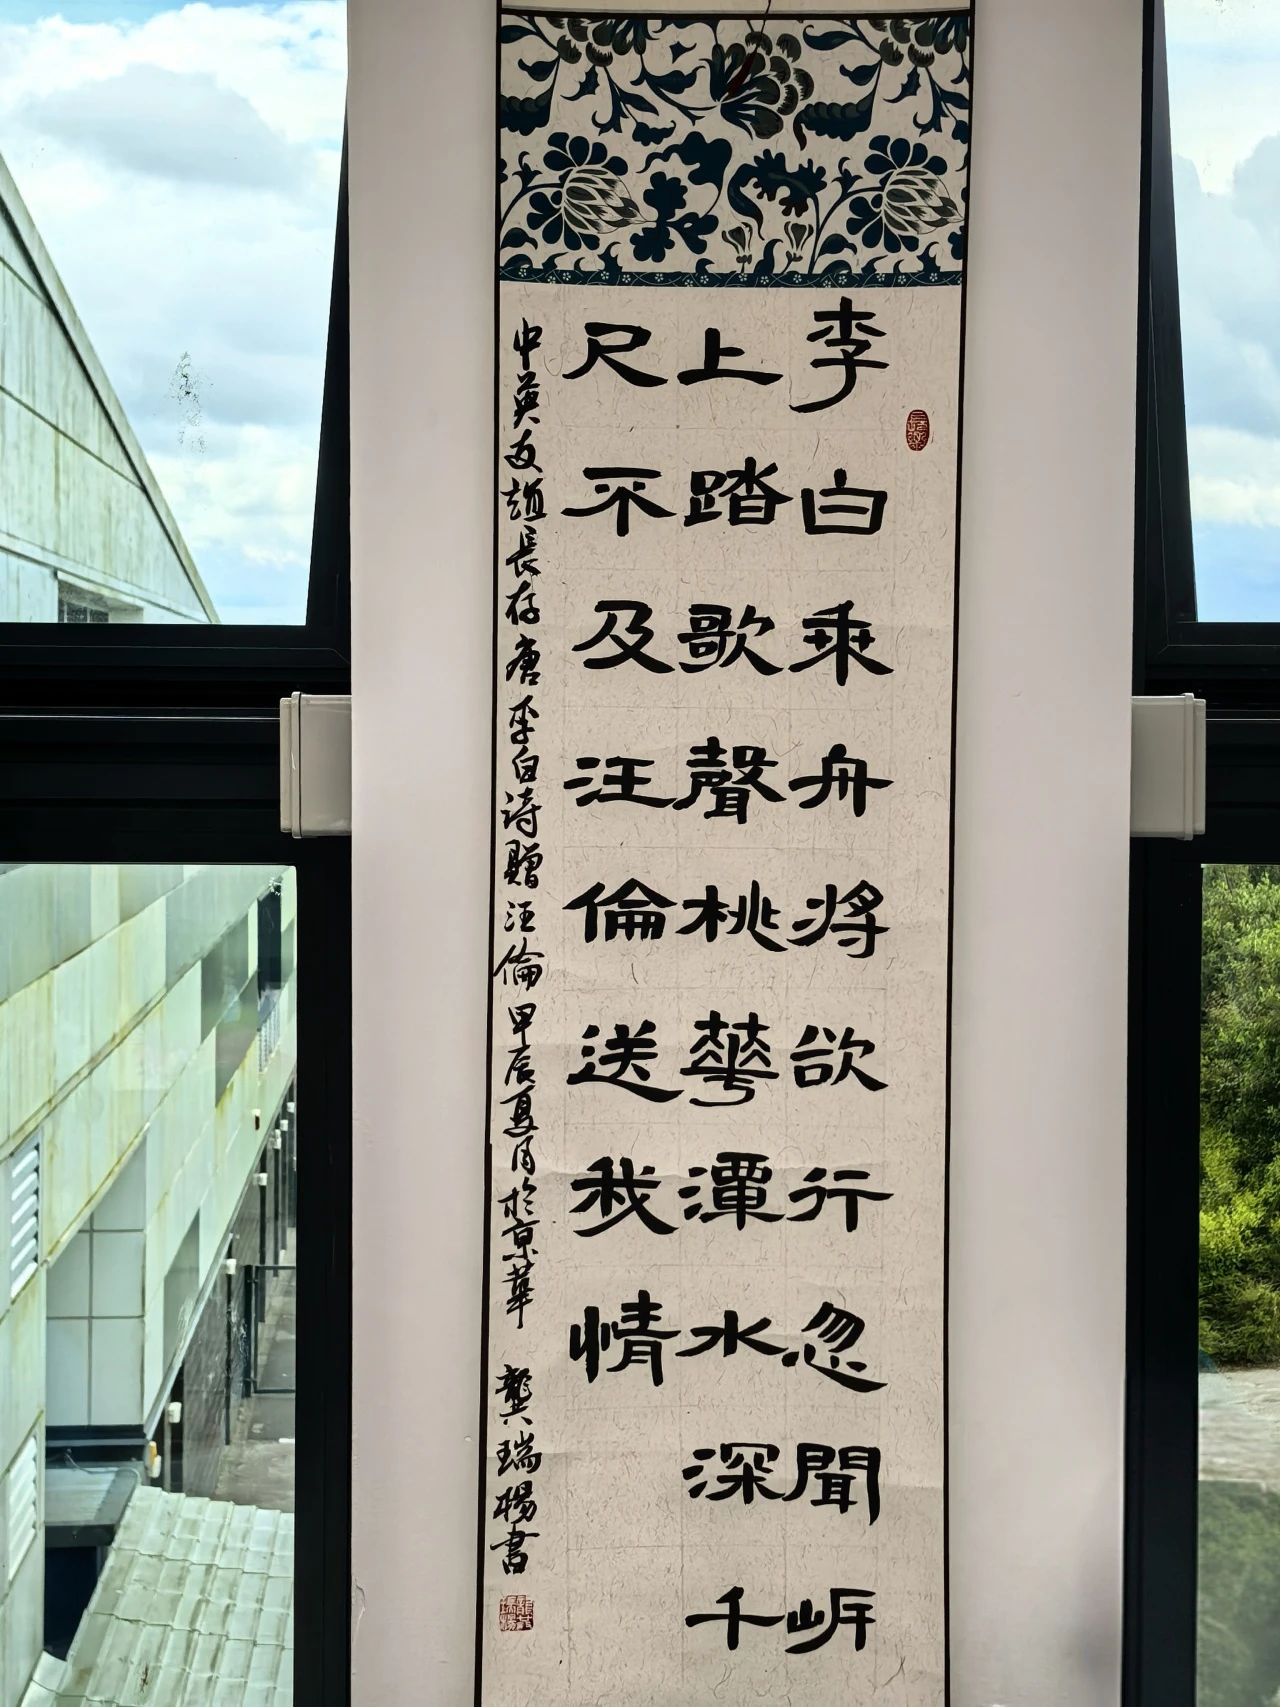 李白乘舟將欲行忽聞岸
上踏歌聲桃華潭水深千
尺不及汪倫送我情
中英友誼長存唐李白诗贈汪倫甲辰夏月於京華 龔瑞楊書